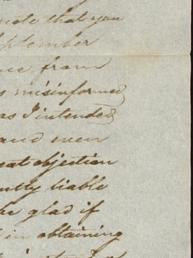 note that you
September
ce from
s misinformed
as I intended
and even
eat objection
ently liable
be glad if
d in obtaining